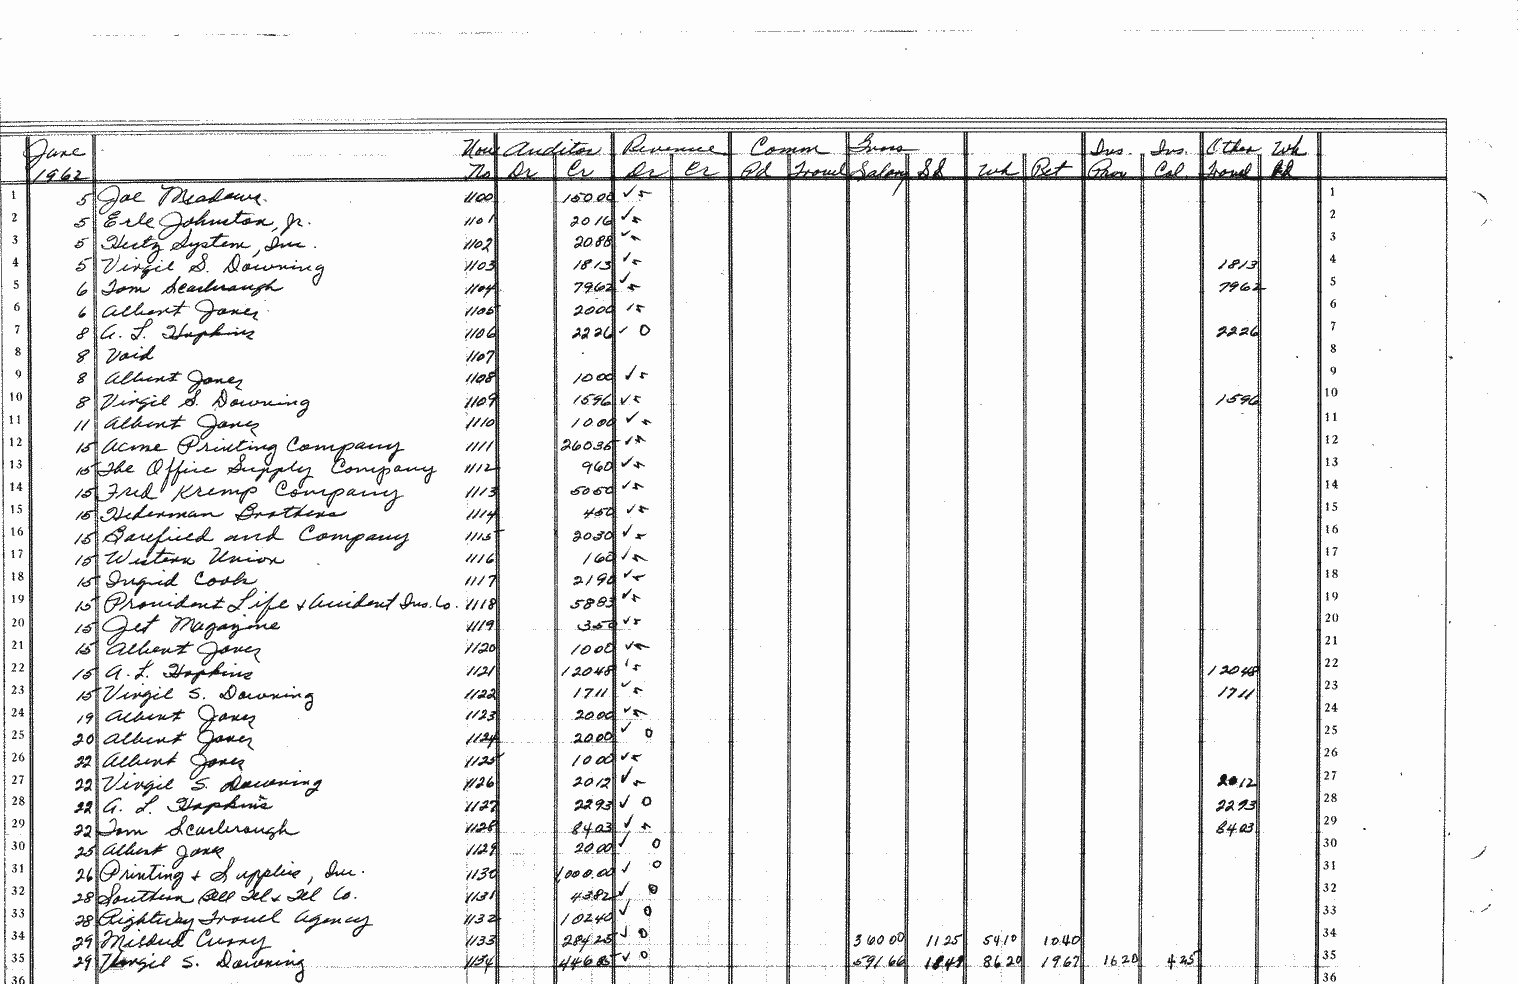 June Nou Auditor Revenue Comm Gross Ins. Ins. Other Wh
1962 No Dr Cr Dr Cr Pd Travel Salary SS Wh Ret Prov Col Travel Pd
1 5 Joe Meadows. 1100 15000 ✓ 1
2 5 Erle Johnston, Jr. 1101 2016 ✓ 2
3 5 Hertz System, Inc. 1102 2088 ✓ 3
4 5 Virgil S. Downing 1103 1813 ✓ 1813 4
5 6 Tom Scarbrough 1104 7962 ✓ 7962 5
6 6 Albert Jones 1105 2000 6
7 8 A. L. Hopkins 1106 2226 ✓ 0 2226 7
8 8 Void 1107 8
9 8 Albert Jones 1108 1000 ✓ 9
10 8 Virgil S. Downing 1109 1596 ✓ 1596 10
11 11 Albert Jones 1110 1000 ✓ 11
12 15 Acme Printing Company 1111 26035 ✓ 12
13 15 The Office Supply Company 1112 960 ✓ 13
14 15 Fred Kremp Company 1113 5050 ✓ 14
15 15 Hederman Brothers 1114 450 ✓ 15
16 15 Barefield and Company 1115 2030 ✓ 16
17 15 Western Union 1116 160 ✓ 17
18 15 Ingrid Cook 1117 2190 ✓ 18
19 15 Provident Life & Accident Ins. Co. 1118 5883 ✓ 19
20 15 Jet Magazine 1119 350 ✓ 20
21 15 Albert Jones 1120 1000 ✓ 21
22 15 A. L. Hopkins 1121 12048 12048 22
23 15 Virgil S. Downing 1122 1711 ✓ 1711 23
24 19 Albert Jones 1123 2000 ✓ 24
25 20 Albert Jones 1124 2000 ✓ 0 25
26 22 Albert Jones 1125 1000 ✓ 26
27 22 Virgil S. Downing 1126 2012 ✓ 2012 27
28 22 A. L. Hopkins 1127 2293 ✓ 0 2293 28
29 22 Tom Scarbrough 1128 8403 ✓ 8403 29
30 25 Albert Jones 1129 2000 ✓ 0 30
31 26 Printing & Supplies, Inc. 1130 1000.00 ✓ 0 31
32 28 Southern Bell Tel & Tel Co. 1131 4382 ✓ 0 32
33 28 Rightway Travel Agency 1132 10240 ✓ 0 33
34 29 Mildred Curry 1133 28425 ✓ 0 36000 1125 5410 1040 34
35 29 Virgil S. Downing 1134 44685 ✓ 0 59166 1849 8620 1967 1620 425 35
36 36